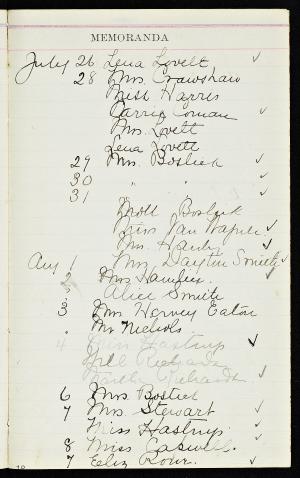 MEMORANDA
July 26 Lena Lovell ✓
28 Mrs Crawshaw
Miss Harris
Carrie Coman ✓
Mrs. Lovell
Lena Lovell
29 Mrs. Bostick ✓
30 " " ✓
31 ✓
Moll Bostick
Miss Van Wagner ✓
Mrs. ✓
Aug 1 Mrs Dayton Smith ✓
2 Mrs
Alice Smith
3 Mrs Hervey Eaton
" Mr Nichols
4 Miss Hastings ✓
Richards
Richards
6 Mrs Bostick ✓
7 Mrs. Stewart ✓
Miss Hastings ✓
8 Miss Caswell. ✓
7 Eliz ✓